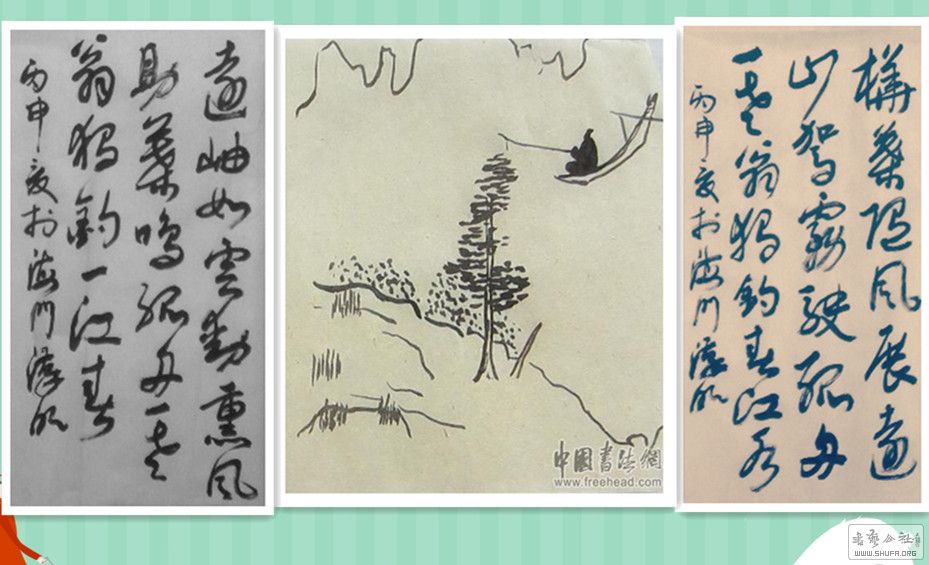 遠岫如雲動熏風
助葉鳴孤舟一老
翁獨釣一江春
丙申夏於海門
中國書法網
www.freehead.com
樺葉隨風展遠
山駕霧駛孤舟
一老翁獨釣春江水
丙申夏於海門
書藝公社
WWW.SHUFA.ORG